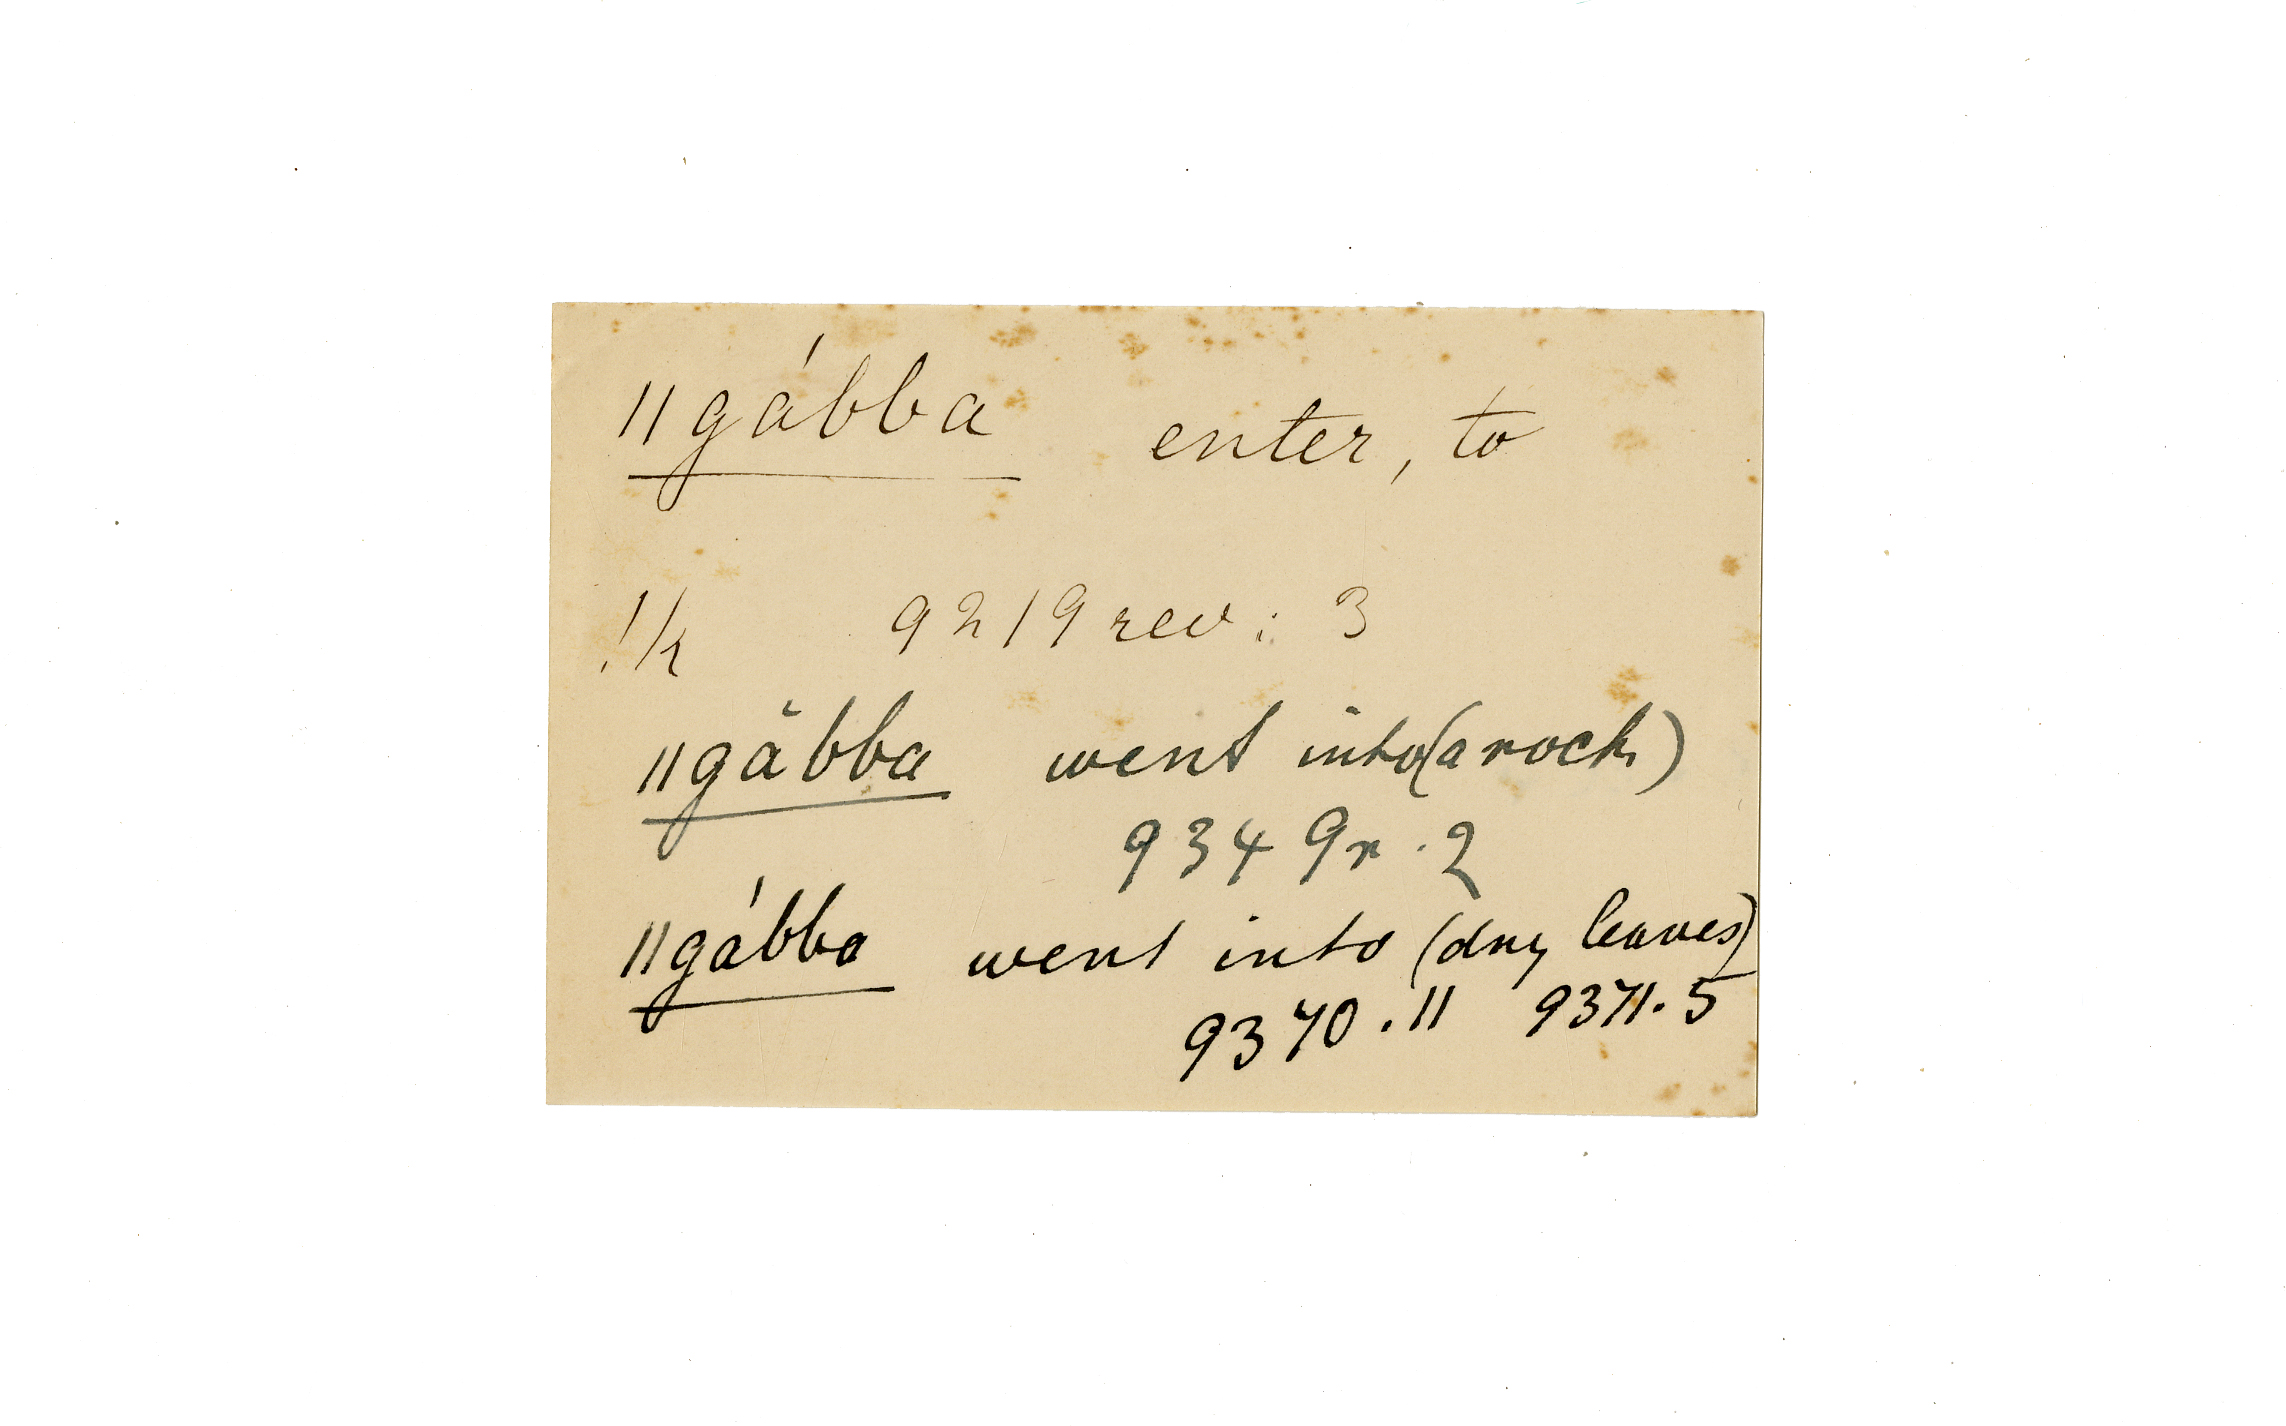 ǁgábba enter, to
!k 9219 rev: 3
ǁgăbba went into (a rock)
9349 r. 2
ǁgábba went into (dry leaves)
9370.11 9371.5